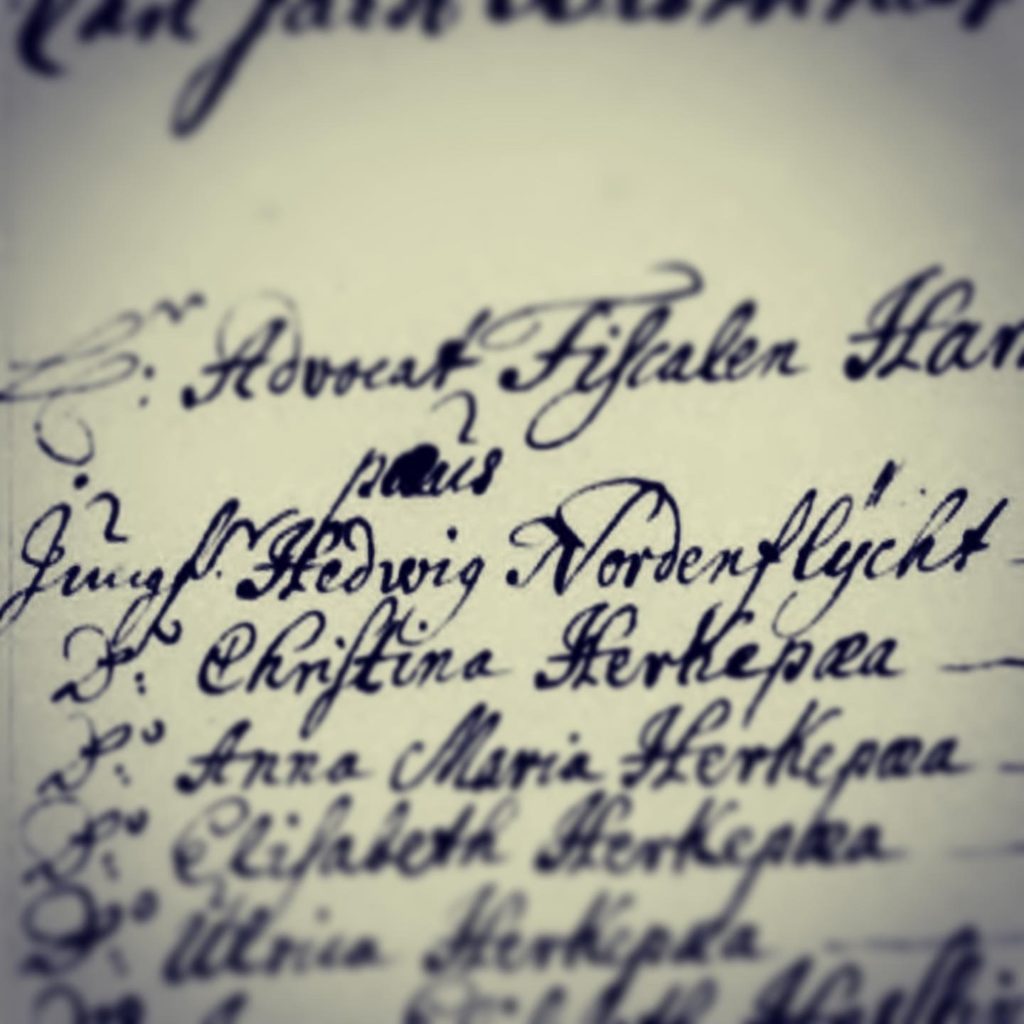 Hr: Advocat Fiscalen Har
pæus
Jungf. Hedwig Nordenflÿcht
Do: Christina Herkepæa
Do: Anna Maria Herkepæa
Do: Elisabeth Herkepæa
Do: Ulrica Herkepæa